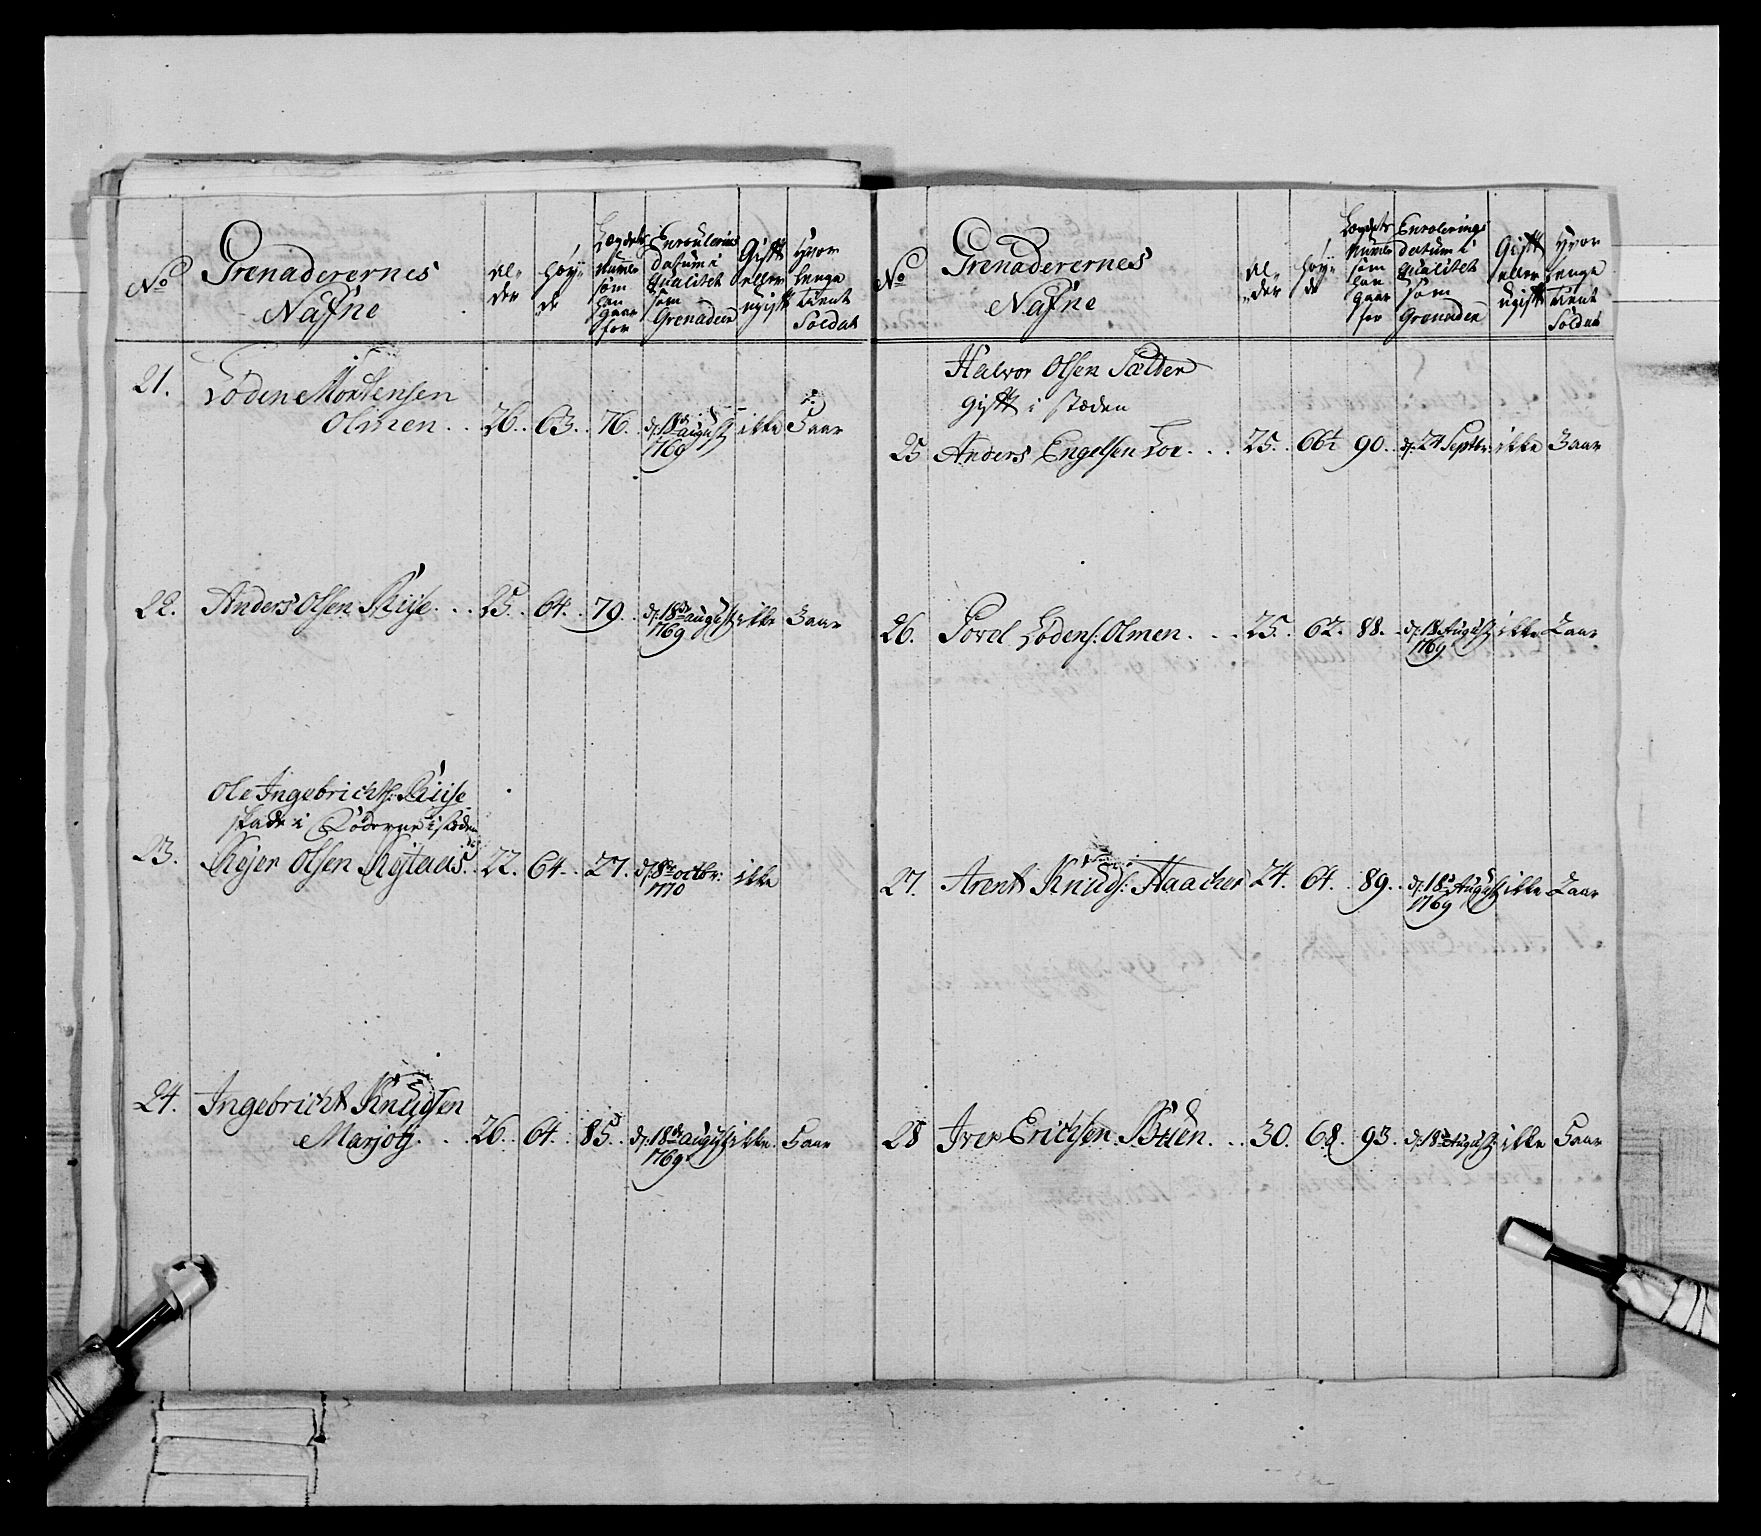 No
Grenaderernes
Nafne
Al-
der
Høy-
de
Lægdets
Numer
som
han
gaar
for
Enroulerings
datum i
qualitet
som
Grenadeer
Gift
eller
ugift
Hvor
lenge
tient
Soldat
21. Loden Mortensen
Olmen . . 26. 63. 76. d: 18de august ikke 5 aar
1769
22. Anders Olsen Riise . . 25. 64. 79. d: 18de august ikke 3 aar
1769
Ole Ingebrichts: Riise
i støden
23. Kejer Olsen . 22. 64. 27. d: 8de octbr: ikke
1770
24. Ingebricht Knudsen
Marjoth . . 26. 64. 85. d: 18de august ikke 5 aar
1769
No
Grenaderernes
Nafne
Al-
der
Høy-
de
Lægdets
Numer
som
han
gaar
for
Enrolerings
datum i
qualitet
som
Grenadeer
Gift
eller
ugift
Hvor
lenge
tient
Soldat
Halvor Olsen Sælder
gift i stæden
25 Anders Engelsen Loe . . . 25. 66½ 90. d: 24 Septbr: ikke 3 aar
26. Povel Lodens: Olmen . . . 25. 62. 88. d: 18 August ikke 2 aar
1769
27. Arent Knuds: Haacher 24. 64. 89. d: 18de August ikke 2 aar
1769
28 Iver Erichsen Bøen . . 30. 68. 93. d: 18de August ikke 5 aar